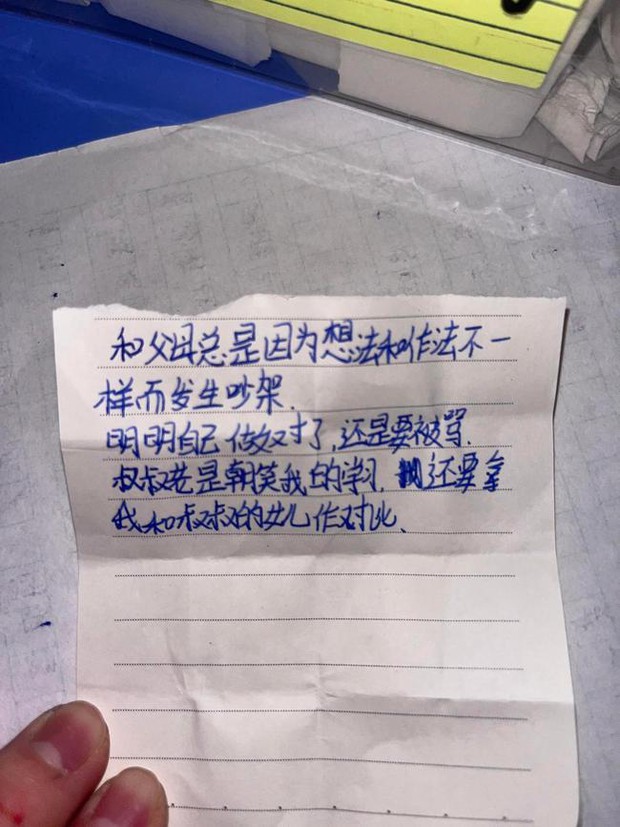 和父母总是因为想法和作法不一
样而发生吵架.
明明自己做对了,还是要被骂.
叔叔老是朝笑我的学习,还要拿
我和叔叔的女儿作对比、